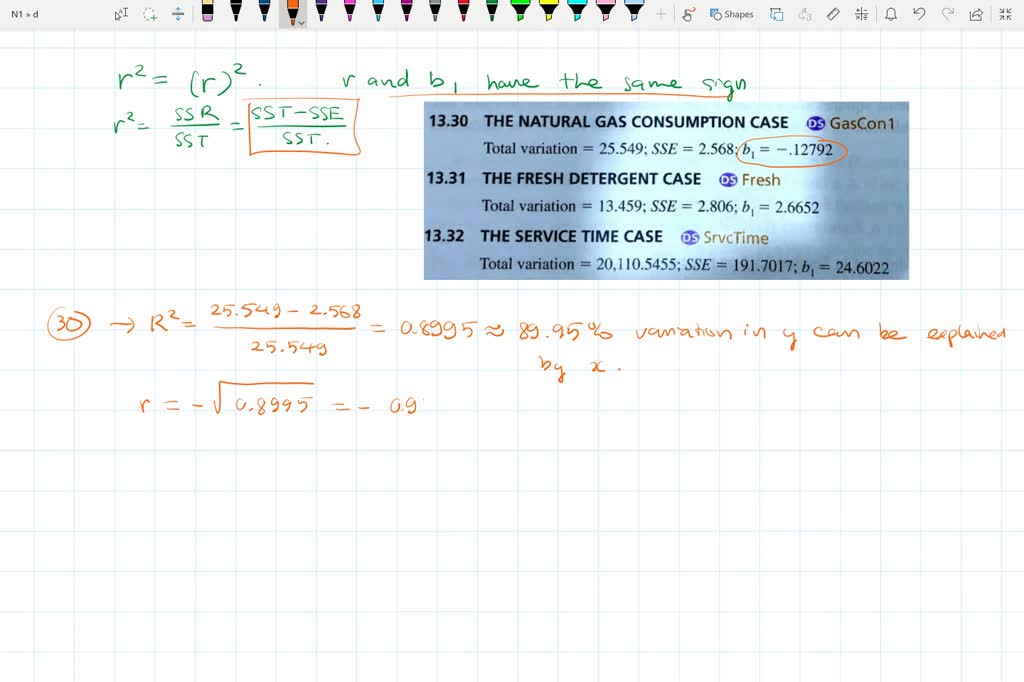 N1 » d
Shapes
r² = (r)². r and b₁ have the same sign
r² = SSR/SST = SST-SSE/SST.
13.30 THE NATURAL GAS CONSUMPTION CASE DS GasCon1
Total variation = 25.549; SSE = 2.568; b₁ = −.12792
13.31 THE FRESH DETERGENT CASE DS Fresh
Total variation = 13.459; SSE = 2.806; b₁ = 2.6652
13.32 THE SERVICE TIME CASE DS SrvcTime
Total variation = 20,110.5455; SSE = 191.7017; b₁ = 24.6022
30 → R² = 25.549 - 2.568/25.549 = 0.8995 ≈ 89.95% variation in y can be explained
by x.
r = -√0.8995 = - 0.9